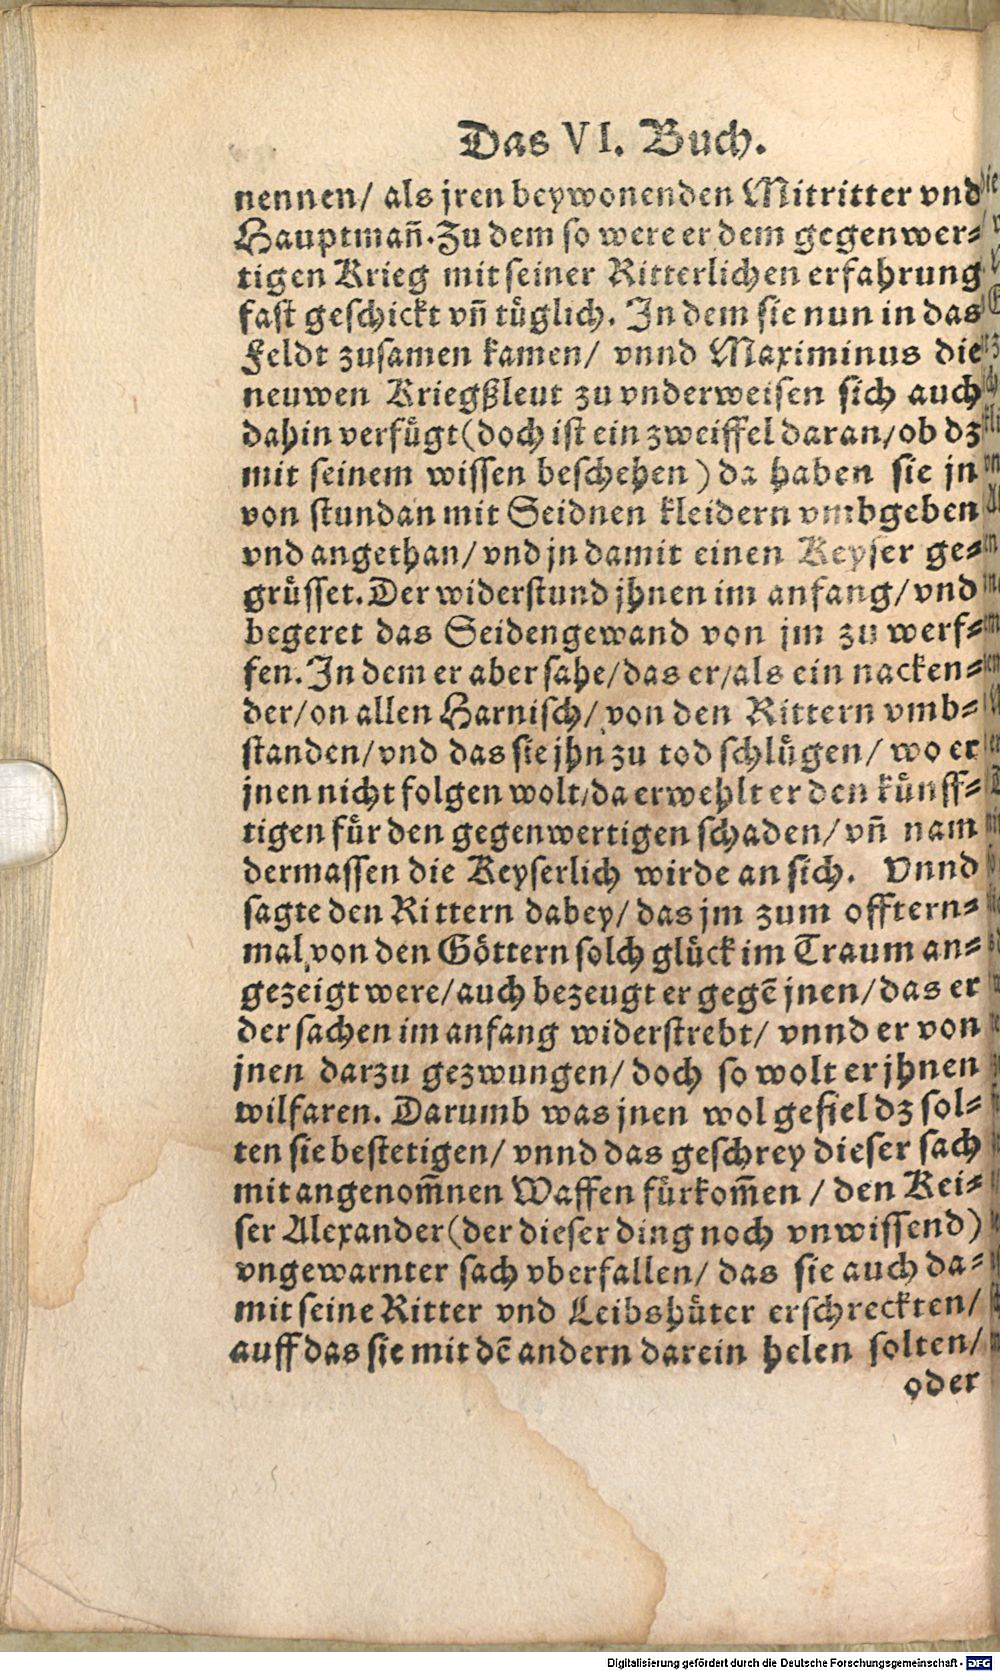 Das VI. Buch.
nennen/ als jren beywonenden Mitritter vnd
Hauptmañ. Zu dem so were er dem gegenwer⸗
tigen Krieg mit seiner Ritterlichen erfahrung
fast geschickt vñ tüglich. In dem sie nun in das
Feldt zusamen kamen/ vnnd Maximinus die
neuwen Kriegßleut zu vnderweisen sich auch
dahin verfügt(doch ist ein zweiffel daran/ob dz
mit seinem wissen beschehen) da haben sie jn
von stundan mit Seidnen kleidern vmbgeben
vnd angethan/ vnd jn damit einen Keyser ge⸗
grüsset. Der widerstund jhnen im anfang/ vnd
begeret das Seidengewand von jm zu werf⸗
fen. In dem er aber sahe/das er/als ein nacken⸗
der/on allen Harnisch/ von den Rittern vmb⸗
standen/vnd das sie jhn zu tod schlügen/ wo er
jnen nicht folgen wolt/da erwehlt er den künff⸗
tigen für den gegenwertigen schaden/ vñ nam
dermassen die Keyserlich wirde an sich. Vnnd
sagte den Rittern dabey/ das jm zum offtern⸗
mal von den Göttern solch glück im Traum an⸗
gezeigt were/auch bezeugt er gegē jnen/das er
der sachen im anfang widerstrebt/ vnnd er von
jnen darzu gezwungen/ doch so wolt er jhnen
wilfaren. Darumb was jnen wol gefiel dz sol⸗
ten sie bestetigen/ vnnd das geschrey dieser sach
mit angenom̄nen Waffen fürkom̄en / den Kei⸗
ser Alexander(der dieser ding noch vnwissend)
vngewarnter sach vberfallen/ das sie auch da⸗
mit seine Ritter vnd Leibshüter erschreckten/
auff das sie mit dē andern darein helen solten/
oder
Digitalisierung gefördert durch die Deutsche Forschungsgemeinschaft - DFG